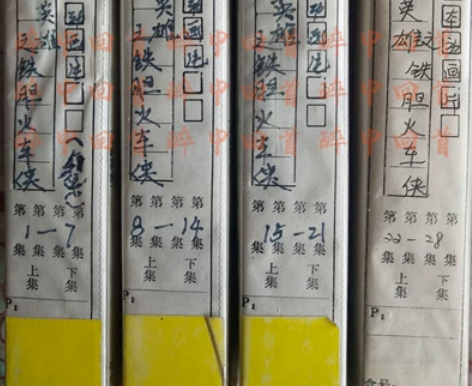 动画片
英雄之铁胆火车侠
第 第 第 第
1—7
集 集 集 集
上集 下集
P:
动画片
英雄之铁胆火车侠
第 第 第 第
8—14
集 集 集 集
上集 下集
P:
动画片
英雄之铁胆火车侠
第 第 第 第
15—21
集 集 集 集
上集 下集
P:
动画片
英雄之铁胆火车侠
第 第 第 第
22—28
集 集 集 集
上集 下集
P: